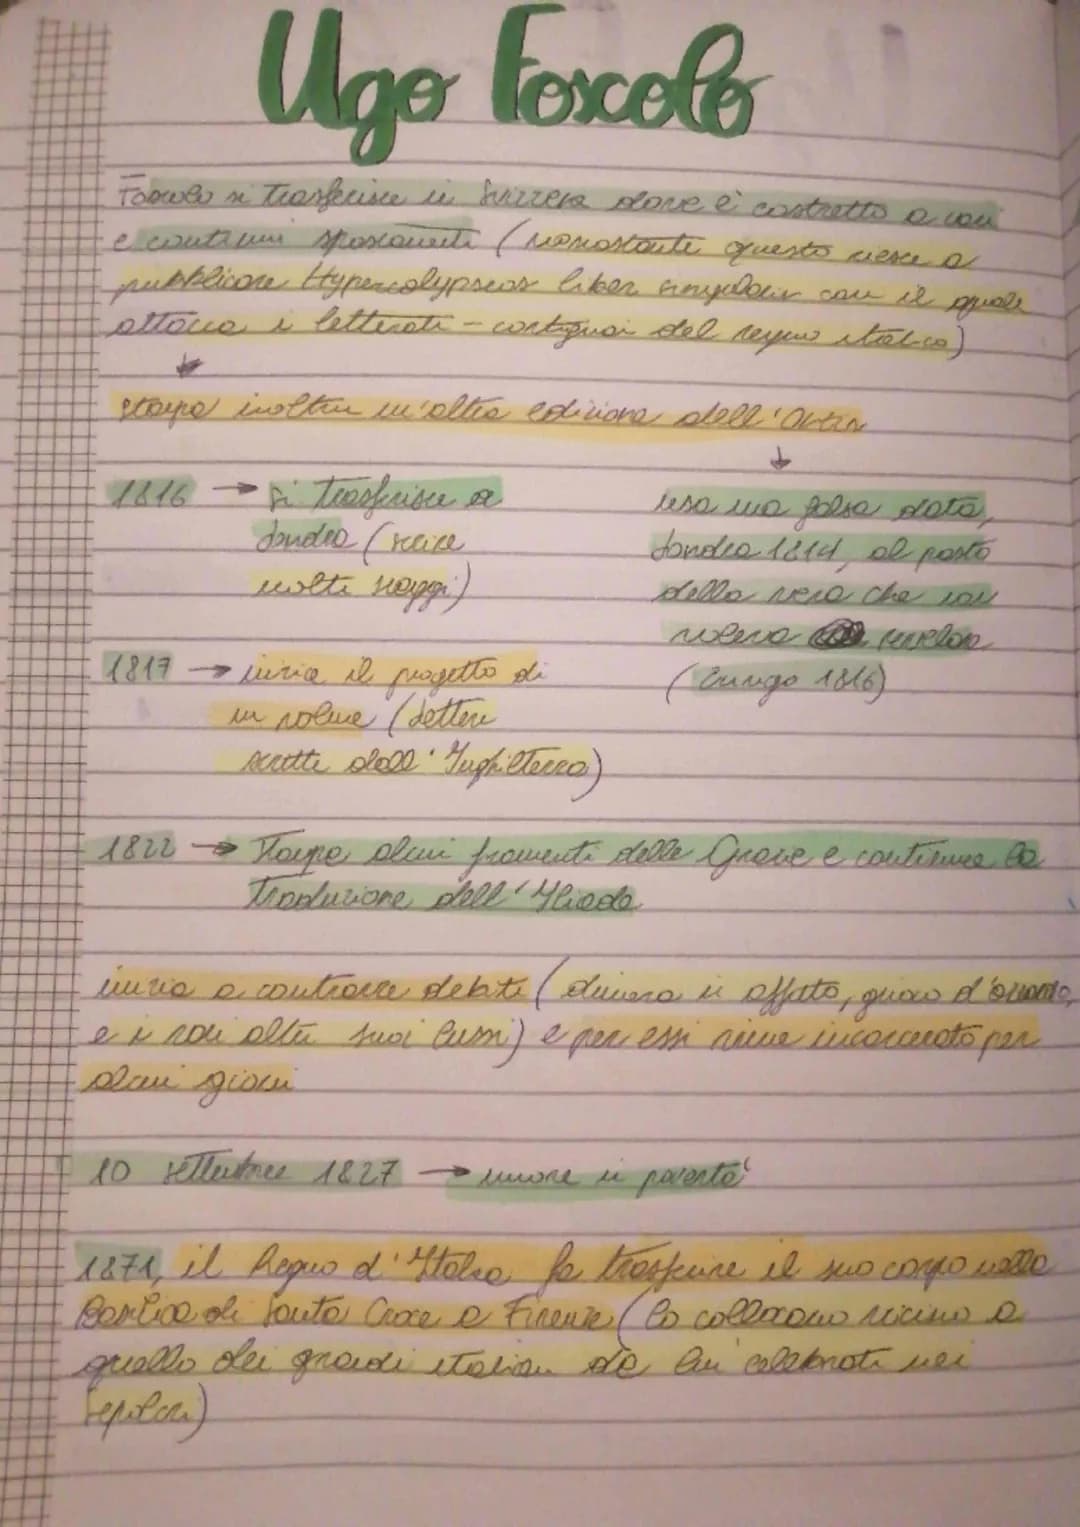 Ugo Foscolo
Foscolo si trasferisce in Svizzera dove è costretto a vari
e continui spostamenti (nonostante questo riesce a
pubblicare Hypercalypseos liber singularis con il quale
attacca i letterati-cortigiani del regno italico)
↓
stampa inoltre un'altra edizione dell'Ortis
↓
1816 → si trasferisce a
Londra (scrive
molti saggi)
usa una falsa data,
Londra 1814, al posto
della vera che non
voleva rivelare
(Zurigo 1816)
1817 → inizia il progetto di
un volume (Lettere
scritte dall'Inghilterra)
1822 → stampa alcuni frammenti delle Grazie e continua la
traduzione dell'Iliade
inizia a contrarre debiti (dimora in affitto, gioco d'azzardo,
e i vari altri suoi lussi) e per essi viene incarcerato per
alcuni giorni
10 settembre 1827 → muore in povertà
1871, il Regno d'Italia fa trasferire il suo corpo nella
Basilica di Santa Croce a Firenze (lo collocano vicino a
quello dei grandi italiani da lui celebrati nei
Sepolcri)